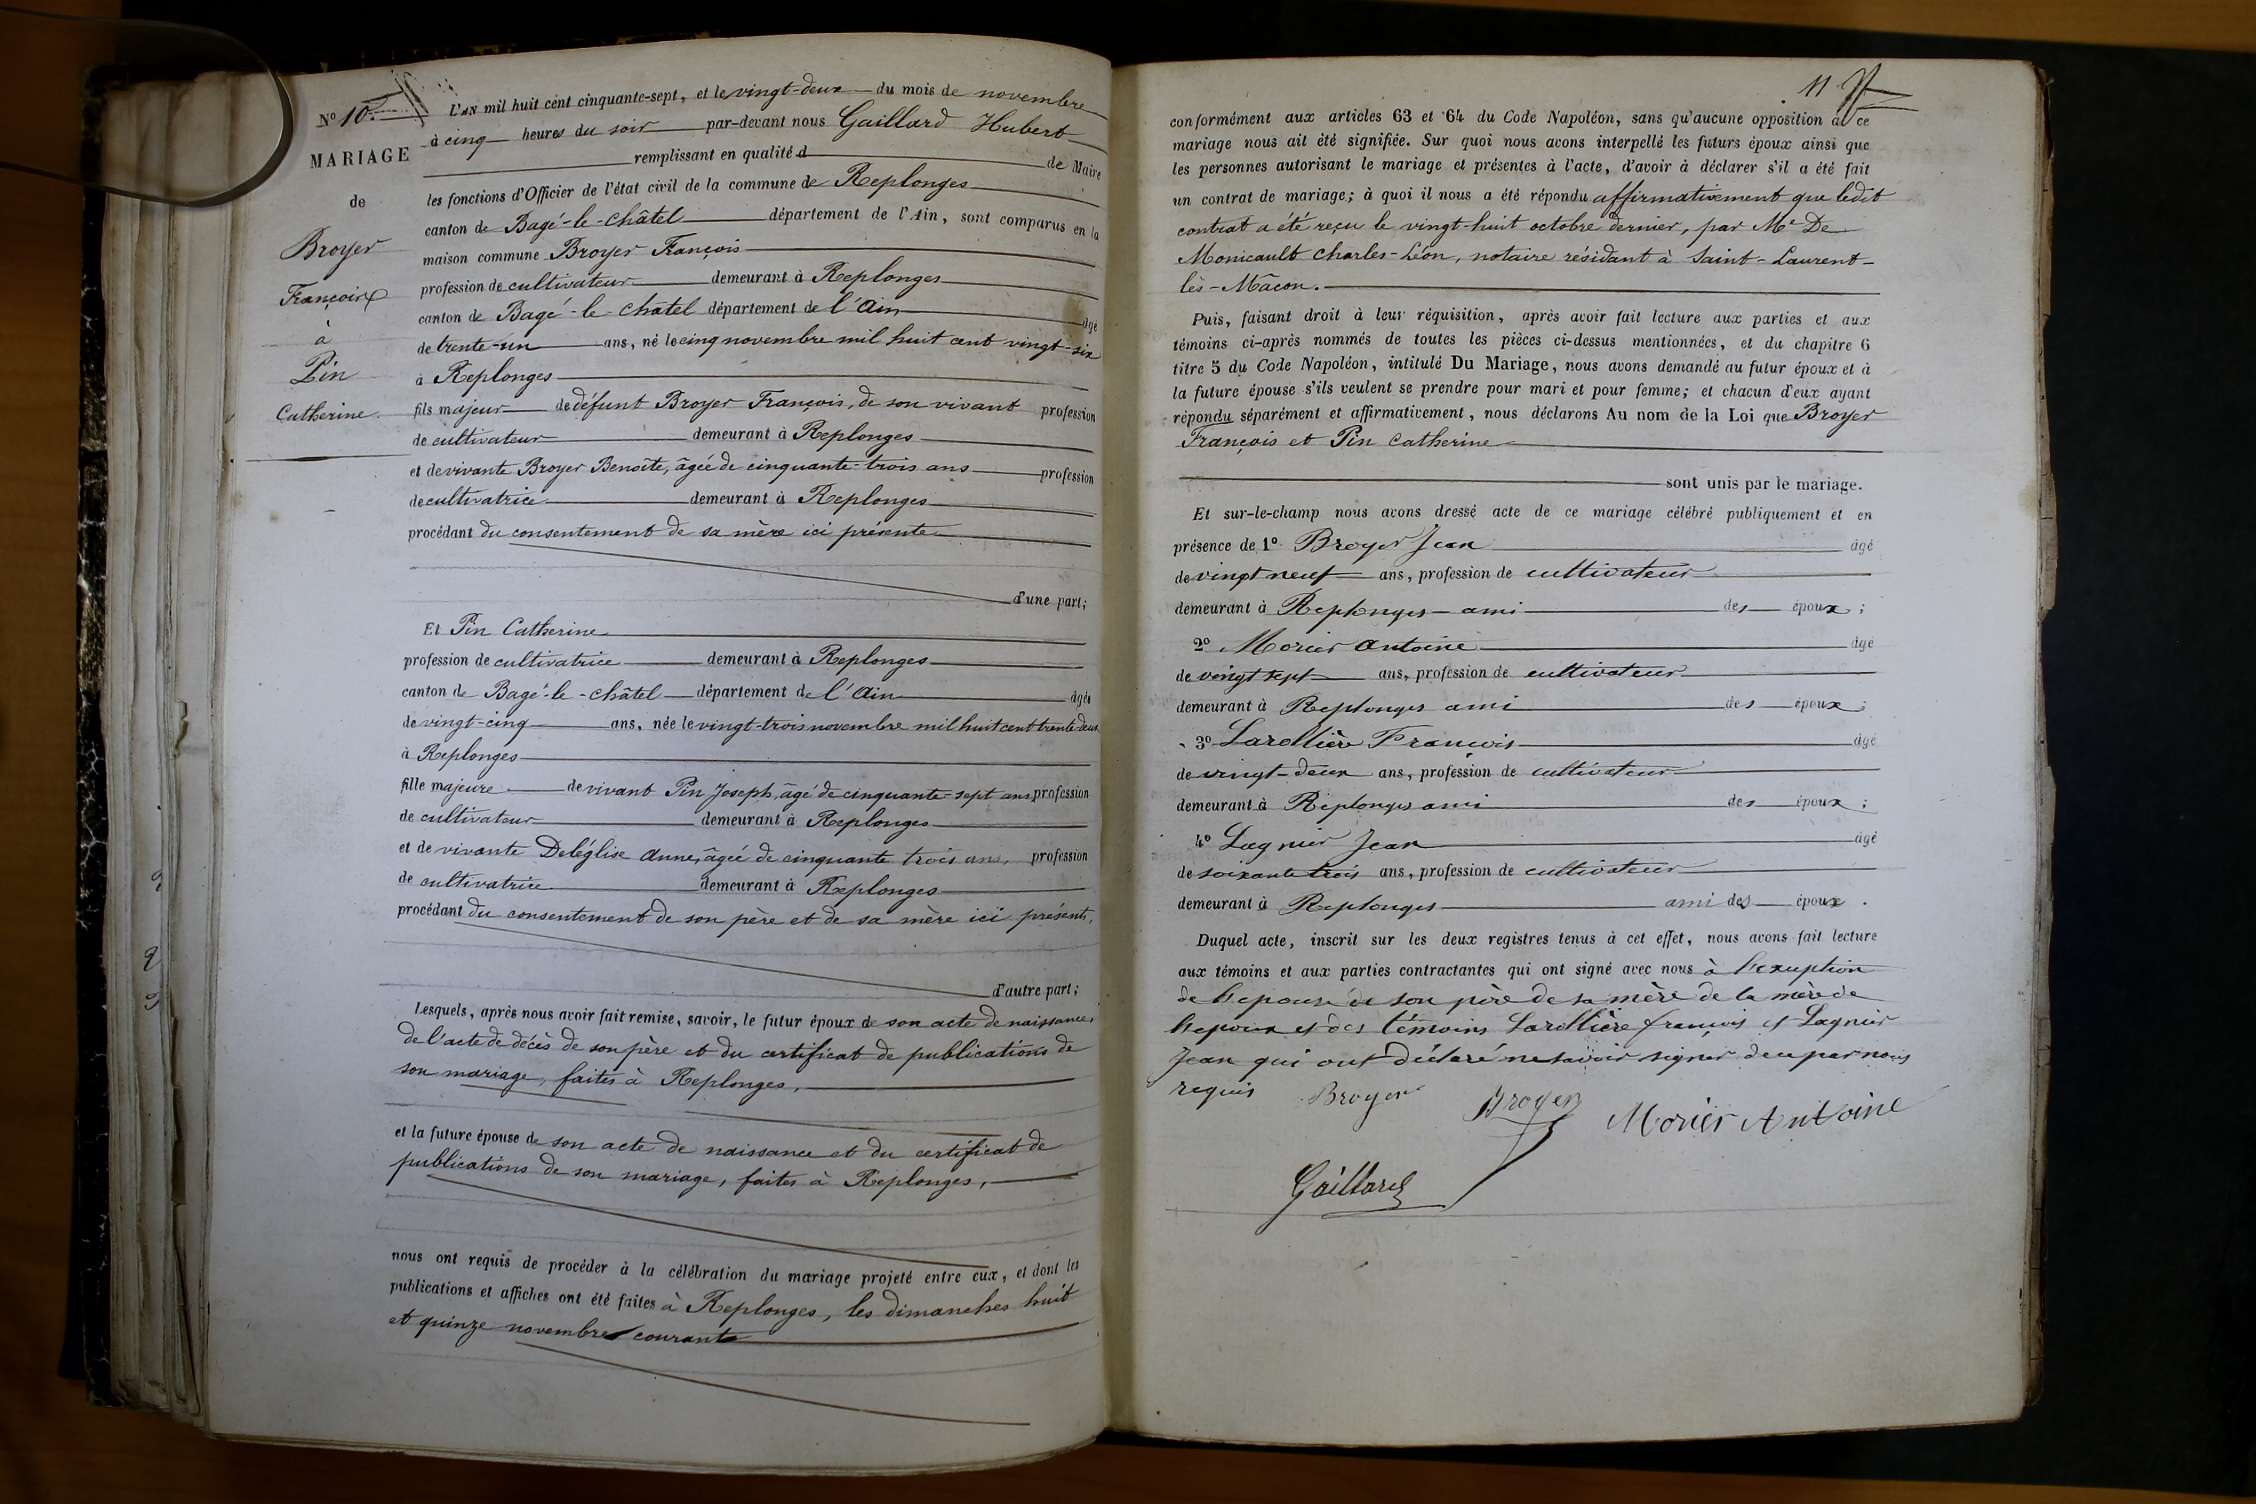 N° 10.
MARIAGE
de
Broyer
François
à
Pin
Catherine.
L'AN mil huit cent cinquante-sept, et le vingt-deux du mois de novembre
à cinq heures du soir par-devant nous Gaillard Hubert
remplissant en qualité d de Maire
les fonctions d'Officier de l'état civil de la commune de Replonges
canton de Bagé-le-châtel département de l'Ain, sont comparus en la
maison commune Broyer François
profession de cultivateur demeurant à Replonges
canton de Bagé-le-châtel département de l'Ain âgé
de trente-un ans, né le cinq novembre mil huit cent vingt-six
à Replonges
fils majeur de défunt Broyer François, de son vivant profession
de cultivateur demeurant à Replonges
et de vivante Broyer Benoîte, âgée de cinquante-trois ans profession
de cultivatrice demeurant à Replonges
procédant du consentement de sa mère ici présente
d'une part;
Et Pin Catherine
profession de cultivatrice demeurant à Replonges
canton de Bagé-le-châtel département de l'Ain âgée
de vingt-cinq ans, née le vingt-trois novembre mil huit cent trente-deux
à Replonges
fille majeure de vivant Pin Joseph, âgé de cinquante-sept ans, profession
de cultivateur demeurant à Replonges
et de vivante Deléglise Anne, âgée de cinquante trois ans, profession
de cultivatrice demeurant à Replonges
procédant du consentement de son père et de sa mère ici présents,
d'autre part;
Lesquels, après nous avoir fait remise, savoir, le futur époux de son acte de naissance,
de l'acte de décès de son père et du certificat de publications de
son mariage, faites à Replonges,
et la future épouse de son acte de naissance et du certificat de
publications de son mariage, faites à Replonges,
nous ont requis de procéder à la célébration du mariage projeté entre eux, et dont les
publications et affiches ont été faites à Replonges, les dimanches huit
et quinze novembre courant
11
conformément aux articles 63 et 64 du Code Napoléon, sans qu'aucune opposition à ce
mariage nous ait été signifiée. Sur quoi nous avons interpellé les futurs époux ainsi que
les personnes autorisant le mariage et présentes à l'acte, d'avoir à déclarer s'il a été fait
un contrat de mariage; à quoi il nous a été répondu affirmativement que ledit
contrat a été reçu le vingt-huit octobre dernier, par Me De
Monicault Charles-Léon, notaire résidant à Saint-Laurent-
lès-Mâcon.
Puis, faisant droit à leur réquisition, après avoir fait lecture aux parties et aux
témoins ci-après nommés de toutes les pièces ci-dessus mentionnées, et du chapitre 6
titre 5 du Code Napoléon, intitulé Du Mariage, nous avons demandé au futur époux et à
la future épouse s'ils veulent se prendre pour mari et pour femme; et chacun d'eux ayant
répondu séparément et affirmativement, nous déclarons Au nom de la Loi que Broyer
François et Pin Catherine
sont unis par le mariage.
Et sur-le-champ nous avons dressé acte de ce mariage célébré publiquement et en
présence de 1° Broyer Jean âgé
de vingt neuf ans, profession de cultivateur
demeurant à Replonges ami des époux;
2° Morier Antoine âgé
de vingt sept ans, profession de cultivateur
demeurant à Replonges ami des époux;
3° Larollière François âgé
de vingt-deux ans, profession de cultivateur
demeurant à Replonges ami des époux;
4° Lagnier Jean âgé
de soixante trois ans, profession de cultivateur
demeurant à Replonges ami des époux.
Duquel acte, inscrit sur les deux registres tenus à cet effet, nous avons fait lecture
aux témoins et aux parties contractantes qui ont signé avec nous à l'exception
de l'epouse de son père de sa mère de la mère de
l'epoux et des témoins Larollière françois et Lagnier
Jean qui ont déclaré ne savoir signer de ce par nous
requis Broyer Broyer Morier Antoine
Gaillard